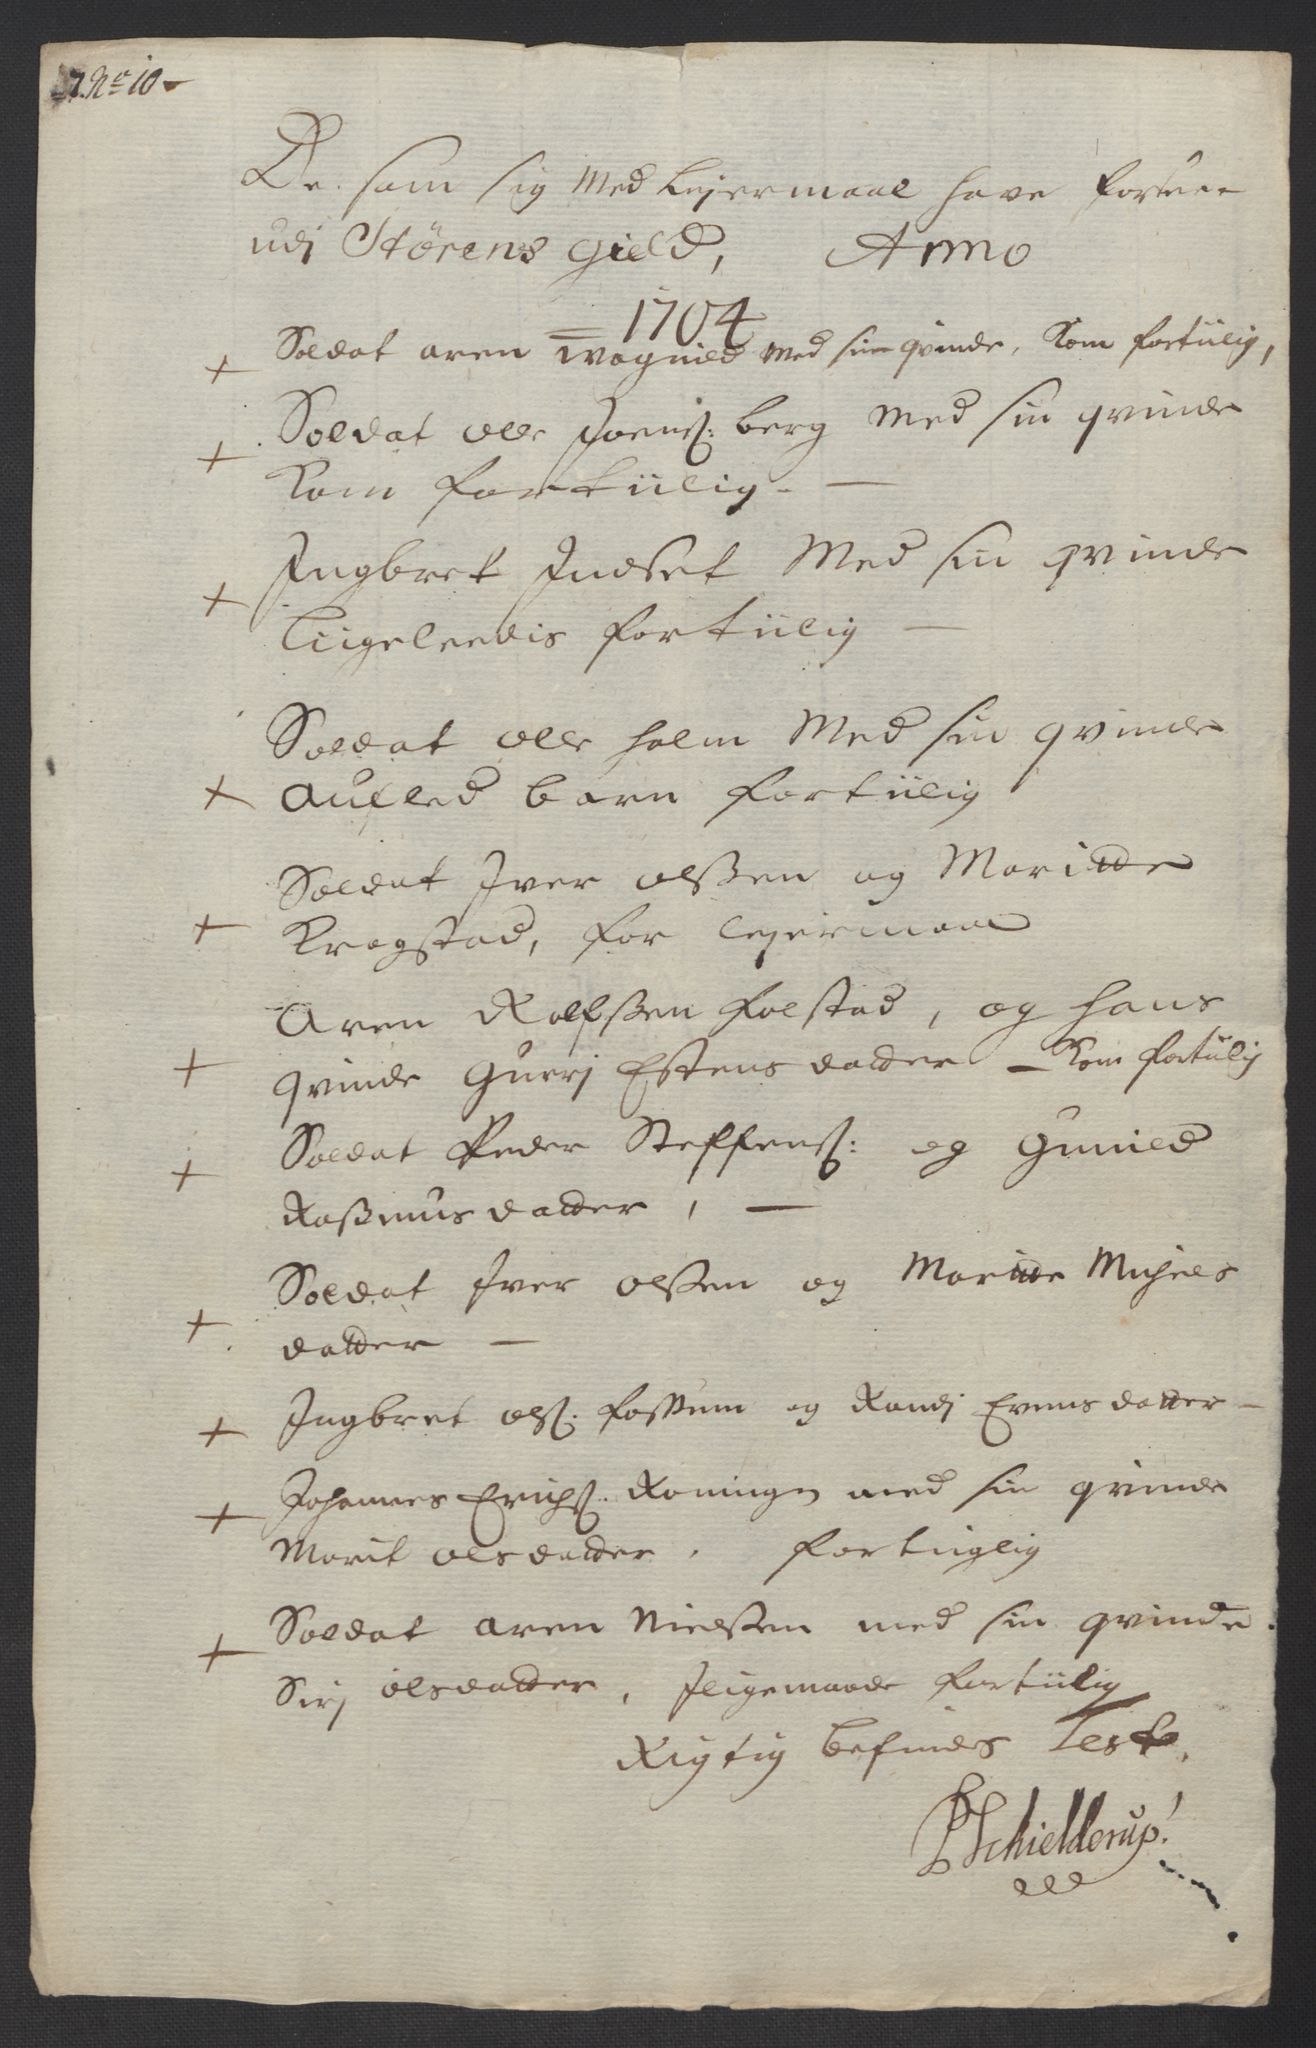 No 10
De som sig Med Lejermaal have forseet
udj Størens gield, Anno
1704
+ Soldat aren wognild Med sin qvinde, Kom fortiilig,
+ Soldat olle Joenß: berg Med sin qvinde
Kom fortiilig. —
+ Ingbret Indset Med sin qvinde
Liigeleedis fortiilig —
Soldat olle holm Med sin qvinde
+ aufled barn fortiilig
Soldat Iver olßen og Maritte
+ Krogstad, for lejermaal
Aren Rolfßen folstad, og hans
+ qvinde Gurj Estensdatter — Kom fortiilig
+ Soldat Peder Steffenß: og Gunild
Raßmusdatter, —
Soldat Iver olßen og Maritte Michels
+ datter —
+ Ingbret olß: foßum og Randj Evensdatter —
+ Johannes Erichß. Roningen med sin qvinde
Marit olsdatter. fortiiglig
+ Soldat aren Nielßen med sin qvinde.
Sirj olsdatter, Iligemaade fortiilig
Rigtig befindes Test.
PSchielderup!